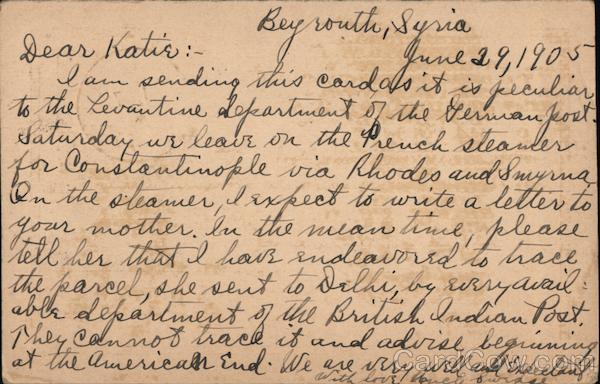 Beyrouth, Syria
Dear Katie:- June 29, 1905
I am sending this card as it is peculiar
to the Levantine department of the German post.
Saturday we leave on the French steamer
for Constantinople via Rhodes and Smyrna.
On the steamer, I expect to write a letter to
your mother. In the mean time, please
tell her that I have endeavored to trace
the parcel, she sent to Delhi, by every avail-
able department of the British Indian Post.
They cannot trace it and advise beginning
at the American End. We are very well and
With love
CardCow.com